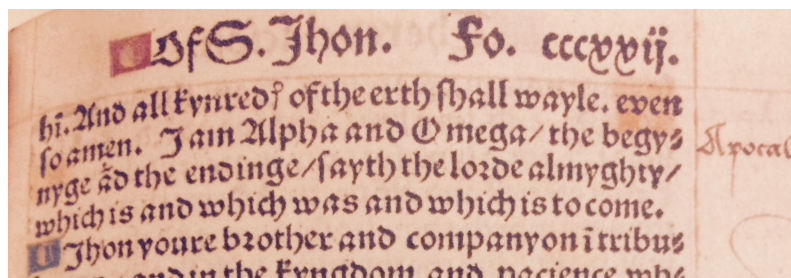 Of S. Jhon. Fo. cccxxij.
hī. And all kynredꝭ of the erth shall wayle. even
so amen. I am Alpha and Omega/ the begy⸗
nyge ād the endinge/ sayth the lorde almyghty/
which is and which was and which is to come.
I Jhon youre brother and companyon ī tribu⸗
and in the kyngdom and pacience wh
Apocal